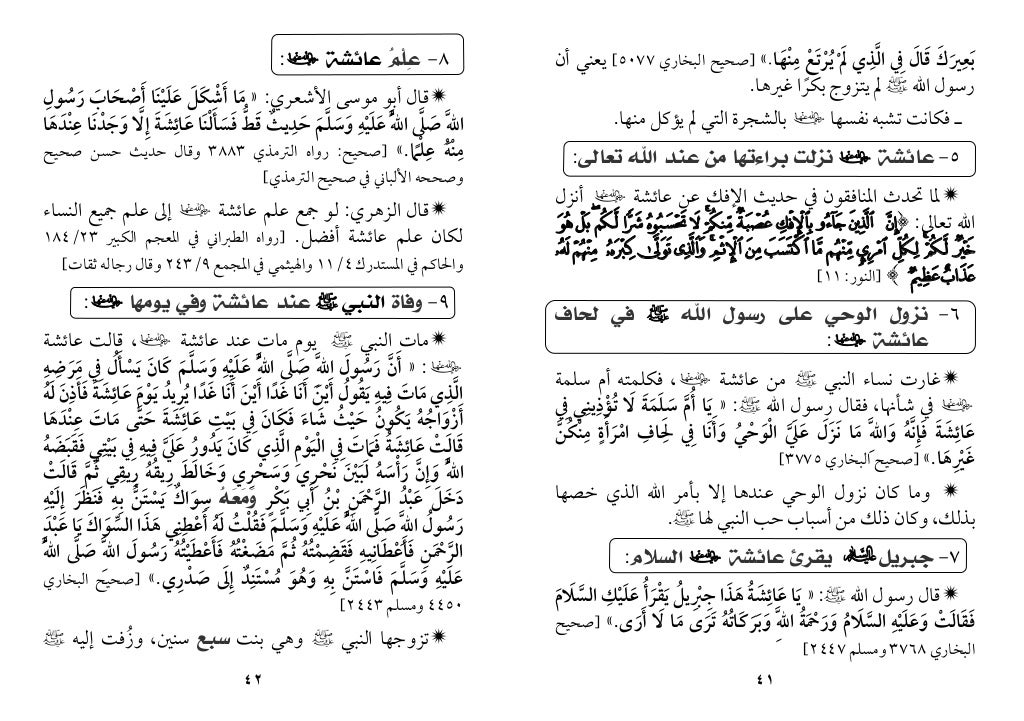 بَعِيرَكَ قَالَ فِي الَّذِي لَمْ يُرْتَعْ مِنْهَا.» [صحيح البخاري ٥٠٧٧] يعني أن
رسول الله ﷺ لم يتزوج بكرًا غيرها.
ـ فكانت تشبه نفسها رضي الله عنها بالشجرة التي لم يؤكل منها.
٥- عائشة رضي الله عنها نزلت براءتها من عند الله تعالى:
✷ لما تحدث المنافقون في حديث الإفك عن عائشة رضي الله عنها أنزل
الله تعالى: ﴿إِنَّ الَّذِينَ جَاءُو بِالْإِفْكِ عُصْبَةٌ مِنكُمْ لَا تَحْسَبُوهُ شَرًّا لَكُم بَلْ هُوَ
خَيْرٌ لَكُمْ لِكُلِّ امْرِئٍ مِنْهُم مَّا اكْتَسَبَ مِنَ الْإِثْمِ وَالَّذِي تَوَلَّى كِبْرَهُ مِنْهُمْ لَهُ
عَذَابٌ عَظِيمٌ﴾ [النور: ١١]
٦- نزول الوحي على رسول الله ﷺ في لحاف
عائشة رضي الله عنها:
✷ غارت نساء النبي ﷺ من عائشة رضي الله عنها، فكلمته أم سلمة
رضي الله عنها في شأنها، فقال رسول الله ﷺ: «يَا أُمَّ سَلَمَةَ لَا تُؤْذِينِي فِي
عَائِشَةَ فَإِنَّهُ وَاللهِ مَا نَزَلَ عَلَيَّ الْوَحْيُ وَأَنَا فِي لِحَافِ امْرَأَةٍ مِنْكُنَّ
غَيْرِهَا.» [صحيح البخاري ٣٧٧٥]
✷ وما كان نزول الوحي عندها إلا بأمر الله الذي خصها
بذلك، وكان ذلك من أسباب حب النبي لها ﷺ.
٧- جبريل عليه السلام يقرئ عائشة رضي الله عنها السلام:
✷ قال رسول الله ﷺ: «يَا عَائِشَةُ هَذَا جِبْرِيلُ يَقْرَأُ عَلَيْكِ السَّلَامَ
فَقَالَتْ وَعَلَيْهِ السَّلَامُ وَرَحْمَةُ اللهِ وَبَرَكَاتُهُ تَرَى مَا لَا أَرَى.» [صحيح
البخاري ٣٧٦٨ ومسلم ٢٤٤٧]
٤١
٨- عِلْمُ عائشة رضي الله عنها:
✷ قال أبو موسى الأشعري: «مَا أَشْكَلَ عَلَيْنَا أَصْحَابَ رَسُولِ
اللهِ صَلَّى اللهُ عَلَيْهِ وَسَلَّمَ حَدِيثٌ قَطُّ فَسَأَلْنَا عَائِشَةَ إِلَّا وَجَدْنَا عِنْدَهَا
مِنْهُ عِلْمًا.» [صحيح: رواه الترمذي ٣٨٨٣ وقال حديث حسن صحيح
وصححه الألباني في صحيح الترمذي]
✷ قال الزهري: لو جمع علم عائشة رضي الله عنها إلى علم جميع النساء
لكان علم عائشة أفضل. [رواه الطبراني في المعجم الكبير ١٨٤/٢٣
والحاكم في المستدرك ١١/٤ والهيثمي في المجمع ٢٤٣/٩ وقال رجاله ثقات]
٩- وفاة النبي ﷺ عند عائشة وفي يومها رضي الله عنها:
✷ مات النبي ﷺ يوم مات عند عائشة رضي الله عنها، قالت عائشة
رضي الله عنها: «أَنَّ رَسُولَ اللهِ صَلَّى اللهُ عَلَيْهِ وَسَلَّمَ كَانَ يَسْأَلُ فِي مَرَضِهِ
الَّذِي مَاتَ فِيهِ يَقُولُ أَيْنَ أَنَا غَدًا أَيْنَ أَنَا غَدًا يُرِيدُ يَوْمَ عَائِشَةَ فَأَذِنَ لَهُ
أَزْوَاجُهُ يَكُونُ حَيْثُ شَاءَ فَكَانَ فِي بَيْتِ عَائِشَةَ حَتَّى مَاتَ عِنْدَهَا
قَالَتْ عَائِشَةُ فَمَاتَ فِي الْيَوْمِ الَّذِي كَانَ يَدُورُ عَلَيَّ فِيهِ فِي بَيْتِي فَقَبَضَهُ
اللهُ وَإِنَّ رَأْسَهُ لَبَيْنَ نَحْرِي وَسَحْرِي وَخَالَطَ رِيقُهُ رِيقِي ثُمَّ قَالَتْ
دَخَلَ عَبْدُ الرَّحْمَنِ بْنُ أَبِي بَكْرٍ وَمَعَهُ سِوَاكٌ يَسْتَنُّ بِهِ فَنَظَرَ إِلَيْهِ
رَسُولُ اللهِ صَلَّى اللهُ عَلَيْهِ وَسَلَّمَ فَقُلْتُ لَهُ أَعْطِنِي هَذَا السِّوَاكَ يَا عَبْدَ
الرَّحْمَنِ فَأَعْطَانِيهِ فَقَضِمْتُهُ ثُمَّ مَضَغْتُهُ فَأَعْطَيْتُهُ رَسُولَ اللهِ صَلَّى اللهُ
عَلَيْهِ وَسَلَّمَ فَاسْتَنَّ بِهِ وَهُوَ مُسْتَنِدٌ إِلَى صَدْرِي.» [صحيح البخاري
٤٤٥٠ ومسلم ٢٤٤٣]
✷ تزوجها النبي ﷺ وهي بنت سبع سنين، وزُفت إليه ﷺ
٤٢